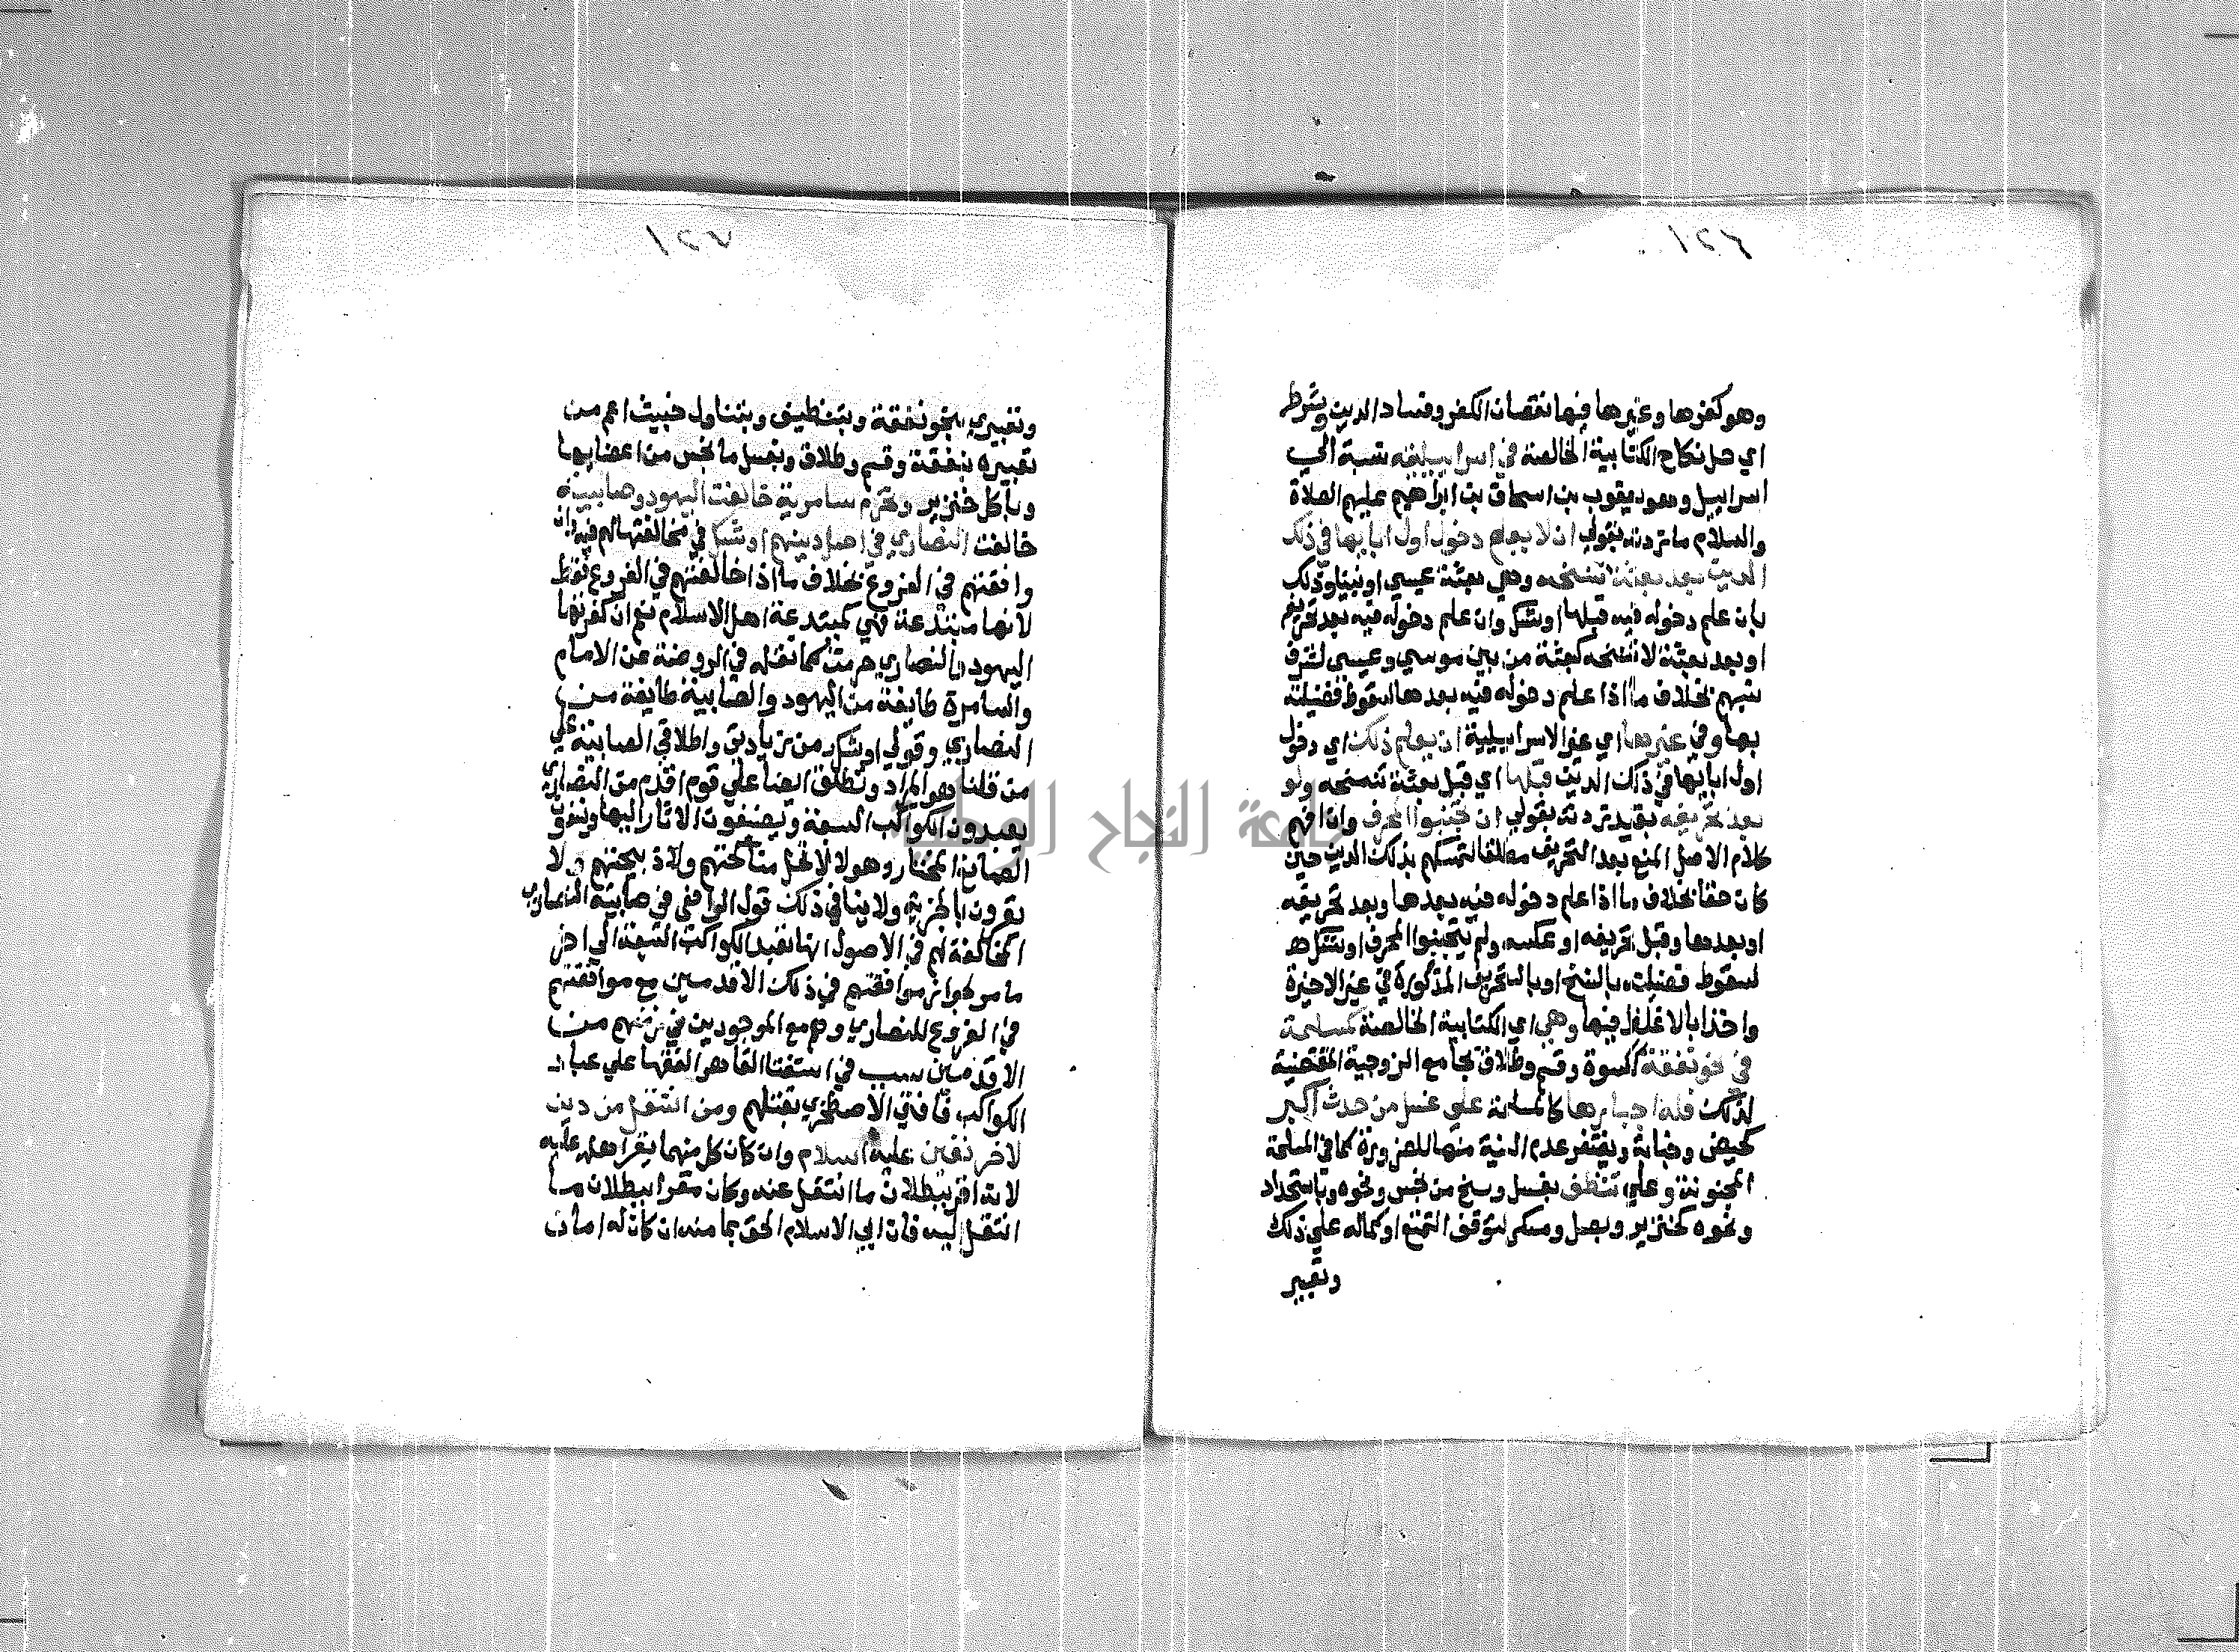 وهو كفرها وغيرها فيها نقصان الكفر وفساد الدين وشرط
اي حل نكاح الكتابية الخالصة في اسراييلية نسبة الي
اسراييل وهو يعقوب بن اسحاق بن ابراهيم عليهم الصلاة
والسلام ما زدته بقولي ان لا يعلم دخول اول ابايها في ذلك
الدين بعد بعثة تنسخه وهي بعثة عيسي او نبينا وذلك
بان علم دخوله فيه قبلها او شك وان علم دخوله فيه بعد تحريفه
او بعد بعثة لا تنسخه كبعثة من بين موسي وعيسي لشرف
نسبهم بخلاف ما اذا علم دخوله فيه بعدها لسقوط فضيلته
بها وفي غيرها اي غير الاسراييلية ان يعلم ذلك اي دخول
اول ابايها في ذلك الدين قبلها اي قبل بعثة تنسخه ولو
بعد تحريفه بقيد زدته بقولي ان تجنبوا المحرف وان افهم
كلام الاصل المنع بعد التحريف مطلقا لتمسكهم بذلك الدين حين
كان حقا بخلاف ما اذا علم دخوله فيه بعدها وبعد تحريفه
او بعدها وقبل تحريفه او عكسه ولم يتجنبوا المحرف او شك
لسقوط فضيلته بالنسخ او بالتحريف المذكورة في غير الاخيرة
واخذا بالاغلظ فيها وهي اي الكتابية الخالصة كمسلمة
في نحو نفقة ككسوة وقسم وطلاق بجامع الزوجية المقتضية
لذلك فله اجبارها كالمسلمة علي غسل من حدث اكبر
كحيض وجنابة ويغتفر عدم النية منها للضرورة كما في المسلمة
المجنونة وعلي تنظف بغسل وسخ من نجس ونحوه وباستحداد
ونحوه كخنزير وبصل ومسكر لتوقف التمتع او كماله علي ذلك
وتعبير
وتعبيري بنحو نفقة وبتنظيف وبتناول خبيث اعم من
تعبيره بنفقة وقسم وطلاق وبغسل ما نجس من اعضايها
وباكل خنزير وتحرم سامرية خالفت اليهود وصابيية
خالفت النصاري في اصل دينهم او شك في مخالفتها لهم فيه وان
وافقتهم في الفروع بخلاف ما اذا خالفتهم في الفروع فقط
لانها مبتدعة فهي كمبتدعة اهل الاسلام نعم ان كفرتها
اليهود والنصاري حرمت كما نقله في الروضة عن الامام
والسامرة طايفة من اليهود والصابية طايفة من
النصاري وقولي او شك من زيادتي واطلاقي الصابية علي
من قلنا هو المراد وتطلق ايضا علي قوم اقدم من النصاري
يعبدون الكواكب السبعة ويضيفون الاثار اليها وينفون
الصانع المختار وهولا لا تحل مناكحتهم ولا ذبيحتهم ولا
يقرون بالجزية ولا ينافي ذلك قول الرافعي في صابية النصاري
المخالفة لهم في الاصول انها تعبد الكواكب السبعة الي اخر
ما مر لجواز موافقتهم في ذلك الاقدمين مع موافقتهم
في الفروع للنصاري وهم مع الموجودين في زمنهم من
الاقدمين سبب في استفتا القاهر الفقها علي عباد
الكواكب فافتي الاصطخري بقتلهم ومن انتقل من دين
لاخر تعين عليه اسلام وان كان كل منهما يقر اهله عليه
لانه اقر ببطلان ما انتقل عنه وكان مقرا ببطلان ما
انتقل اليه فان ابي الاسلام الحق بما منه ان كان له امان